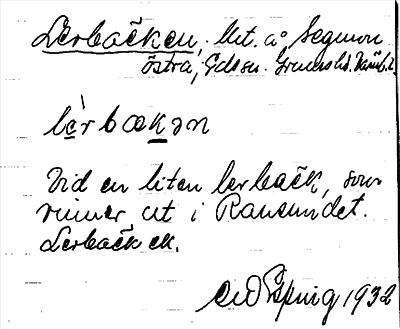 Lerbäcken, Ut. å Segmon
östra, Edsv. Grums hd. Värml.
lèrbækən
Vid en liten lerbäck, som
rinner ut i Ransundet.
Lerbäcken.
1932